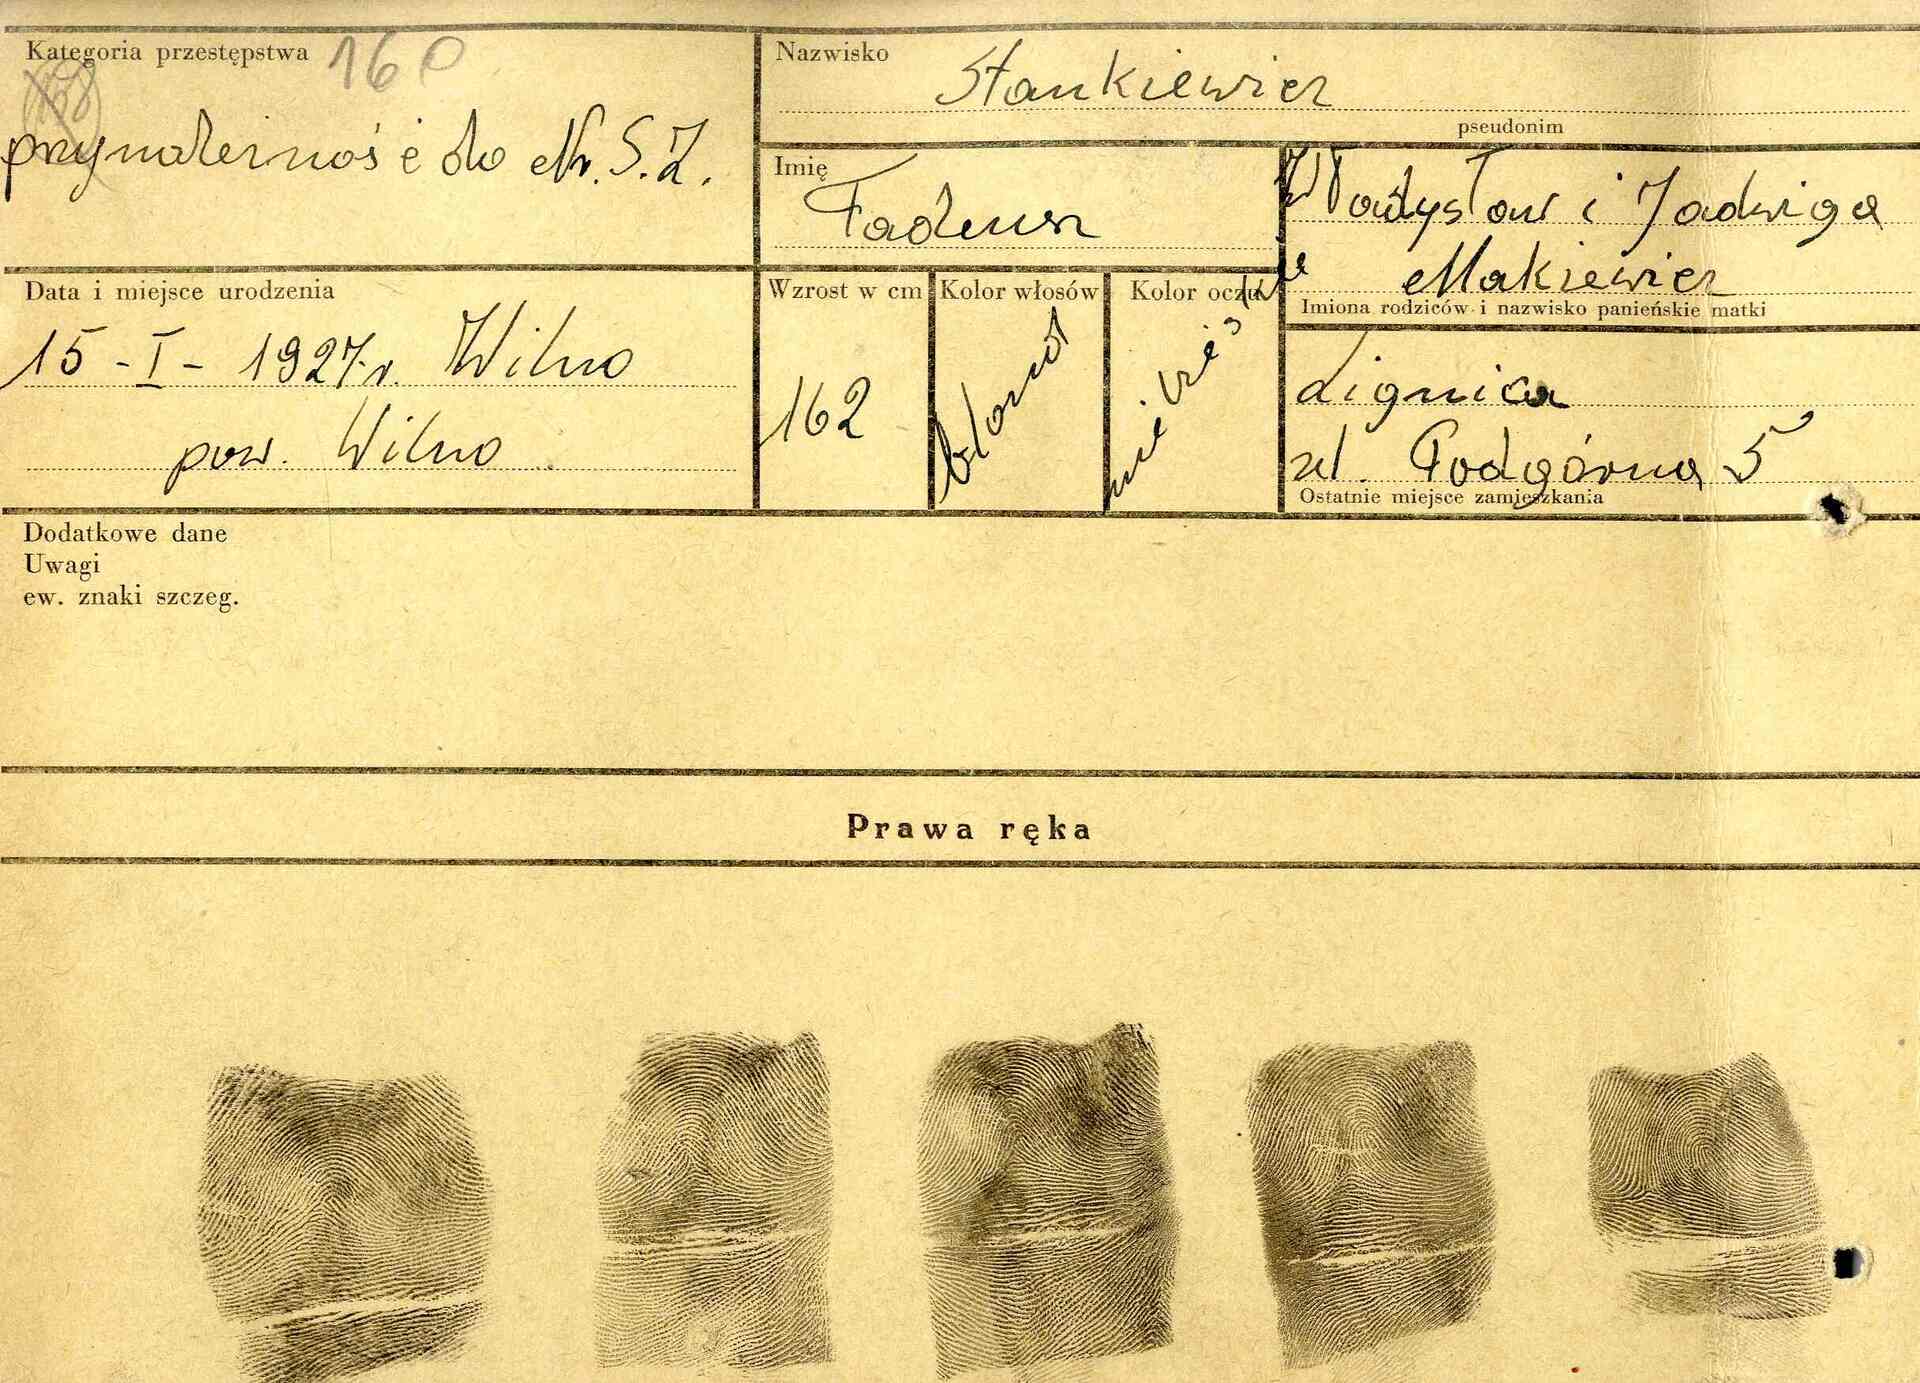 Kategoria przestępstwa 160
przynależność do N.S.Z.
Nazwisko
Stankiewicz
pseudonim
Imię
Tadeusz
Władysław i Jadwiga
Makiewicz
Imiona rodziców i nazwisko panieńskie matki
Data i miejsce urodzenia
15 - I - 1927 r. Wilno
pow. Wilno
Wzrost w cm
162
Kolor włosów
blond
Kolor oczu
niebieskie
Lignica
ul. Podgórna 5
Ostatnie miejsce zamieszkania
Dodatkowe dane
Uwagi
ew. znaki szczeg.
Prawa ręka